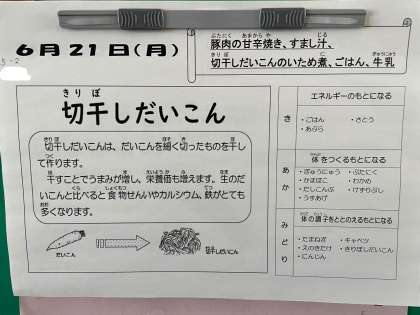 6月21日(月)
豚肉の甘辛焼き、すまし汁、
切干しだいこんのいため煮、ごはん、牛乳
切干しだいこん
切干しだいこんは、だいこんを細く切ったものを干し
て作ります。
干すことでうまみが増し、栄養価も増えます。生のだ
いこんと比べると食物せんいやカルシウム、鉄がとても
多くなります。
だいこん
切干しだいこん
エネルギーのもとになる
き
・ごはん ・さとう
・あぶら
体をつくるもとになる
あか
・ぎゅうにゅう ・ぶたにく
・かまぼこ ・わかめ
・だしこんぶ ・けずりぶし
・うすあげ
体の調子をととのえるもとになる
みどり
・たまねぎ ・キャベツ
・えのきだけ ・きりぼしだいこん
・にんじん